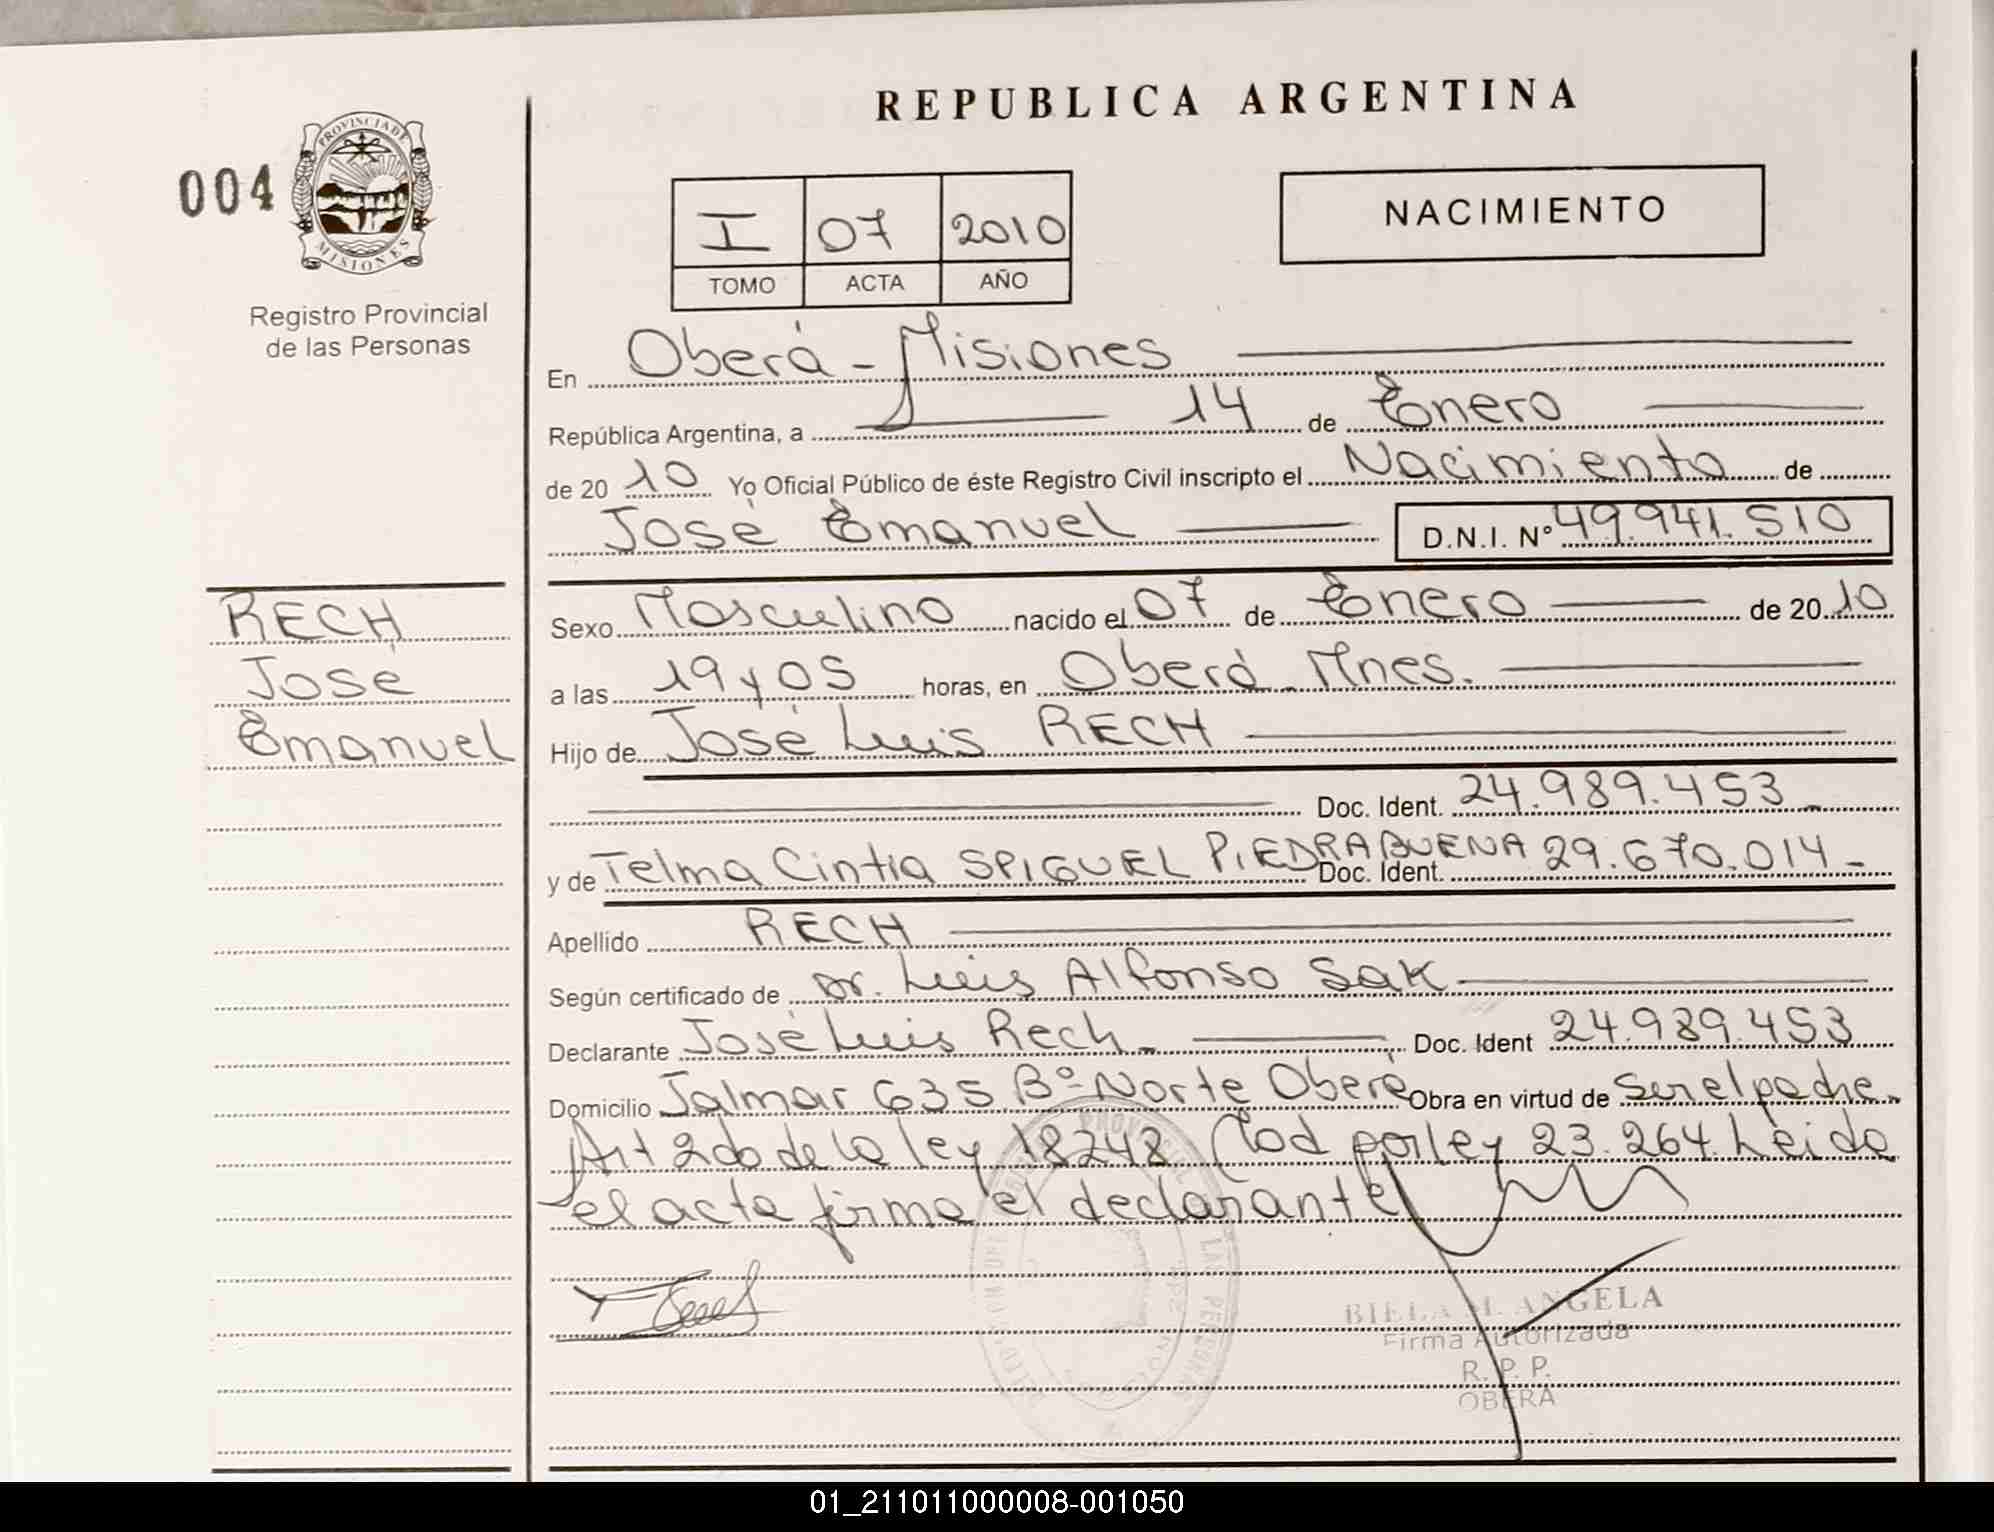 REPUBLICA ARGENTINA
004
PROVINCIA DE
MISIONES
Registro Provincial
de las Personas
I 07 2010
TOMO ACTA AÑO
NACIMIENTO
En Oberá - Misiones
República Argentina, a 14 de Enero
de 2010 Yo Oficial Público de éste Registro Civil inscripto el Nacimiento de
José Emanuel D.N.I. Nº 49.941.510
RECH
José
Emanuel
Sexo Masculino nacido el 07 de Enero de 2010
a las 19 y 05 horas, en Oberá - Mnes.
Hijo de José Luis RECH
Doc. Ident. 24.989.453 -
y de Telma Cintia SPIGUEL PIEDRABUENA Doc. Ident. 29.670.014 -
Apellido RECH
Según certificado de Dr. Luis Alfonso Sak
Declarante José Luis Rech - Doc. Ident 24.989.453
Domicilio Jalmar 635 Bº Norte Oberá Obra en virtud de Ser el padre -
Art 2do de la ley 18248 Mod por ley 23.264. Leida
el acta firma el declarante
BIELA M. ANGELA
Firma Autorizada
R. P. P.
OBERA
01_211011000008-001050